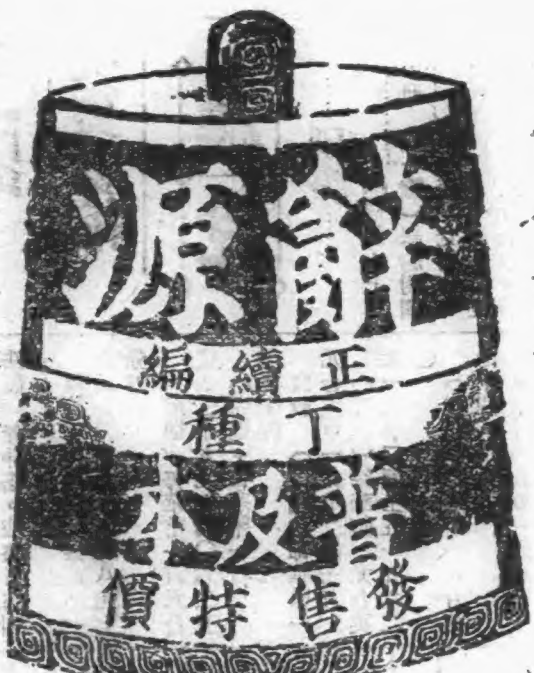 辭源
正續編
丁種
普及本
發售特價